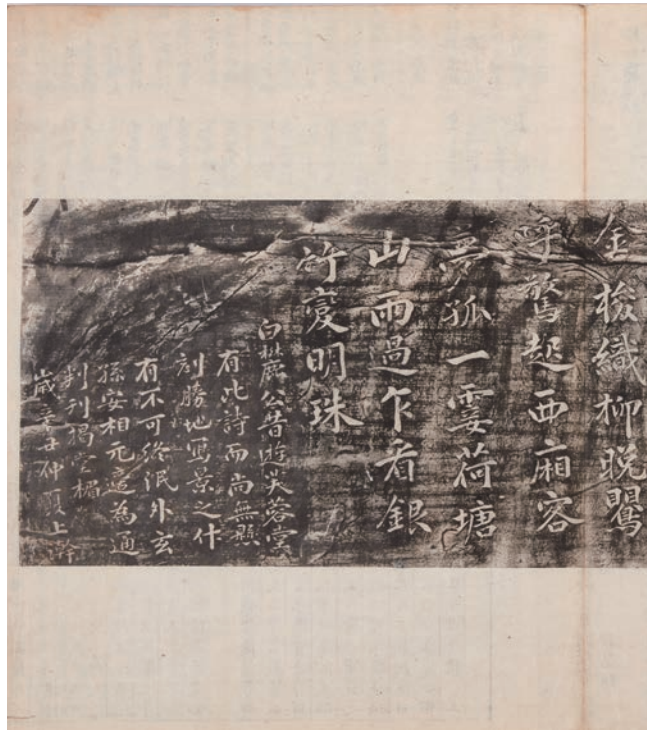 金梭織柳晚鸎
呼驚起西廂客
夢孤一霎荷塘
山雨過乍看銀
竹變明珠
白麓公昔遊芙蓉堂
有此詩而尚無懸
刻勝地寫景之什
有不可終泯外玄
孫安相元適為通
判刊揭堂楣
歲辛丑仲夏上澣